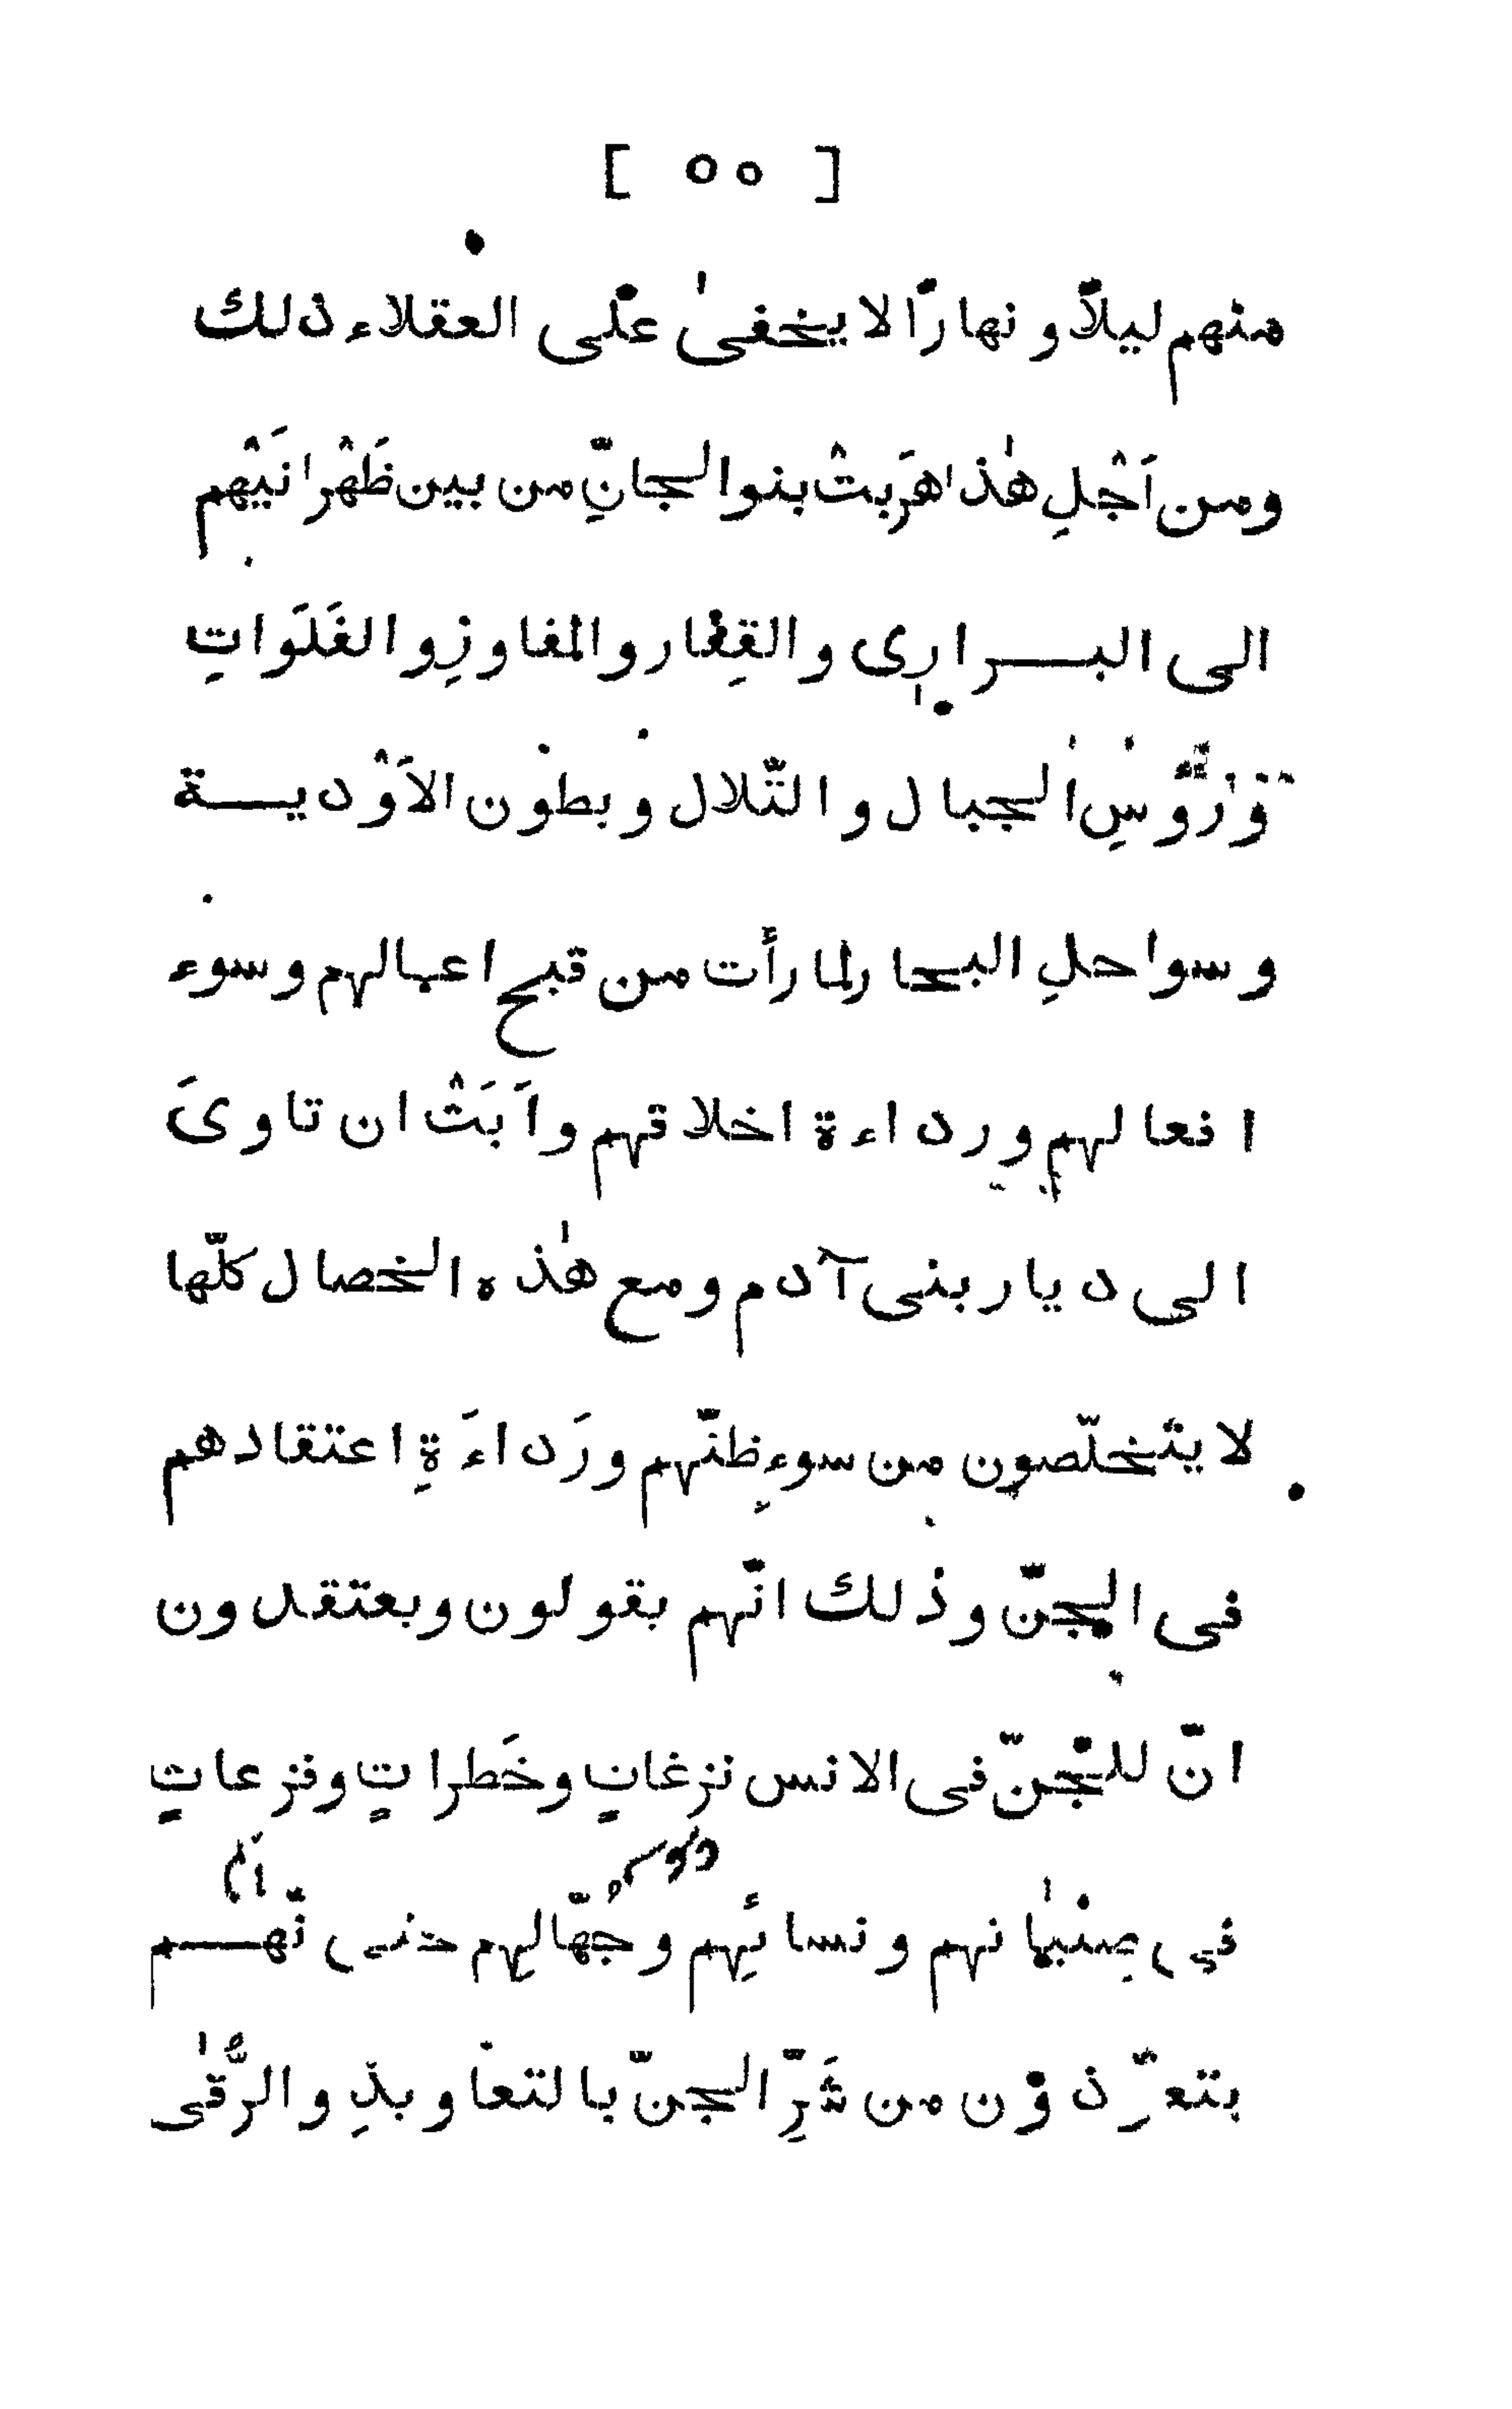 [ ٥٥ ]
منهم ليلًا و نهارًا لا يخفىٰ على العقلاء ذلك
ومن اَجْلِ هٰذا هرَبتْ بنوا لجانِّ من بين ظَهْرا نَيْهم
الى البراري والقِفار والمفاوزِ والفَلَواتِ
وَرُؤُسِ الجبال والتّلال وبطون الاَوْدية
وسواحلِ البحار لما رأت من قبح اعمالهم وسوء
افعالهم ورداءة اخلاقهم واَبَتْ ان تاوىَ
الى ديار بنى آدم ومع هٰذه الخصال كلّها
لا يتخلّصون من سوءِ ظنّهم ورَداءَةِ اعتقادهم
فى الجنّ وذلك انّهم يقولون ويعتقدون
انّ للجنّ فى الانس نزغاتٍ وخَطراتٍ وفزعاتٍ
فى صِبْيانهم ونسائِهم وجُهّالِهم حتى انّهم
يتعوّذون من شَرِّ الجنّ بالتعاويذِ والرُّقىٰ